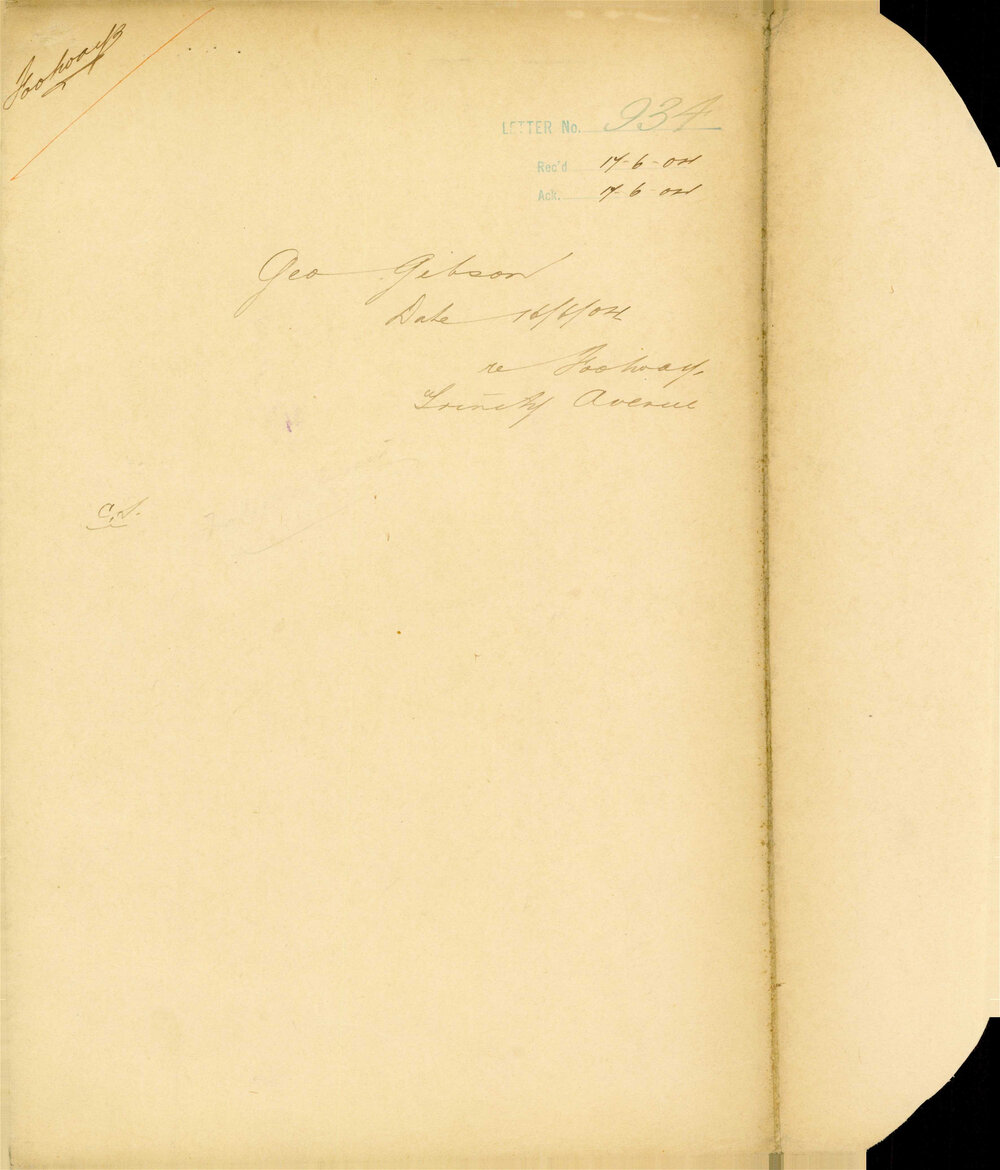 Footways
LETTER No. 934
Rec'd 17-6-04
Ack. 17-6-04
Geo Gibson
Date 16/6/04
re Footway.
Trinity Avenue